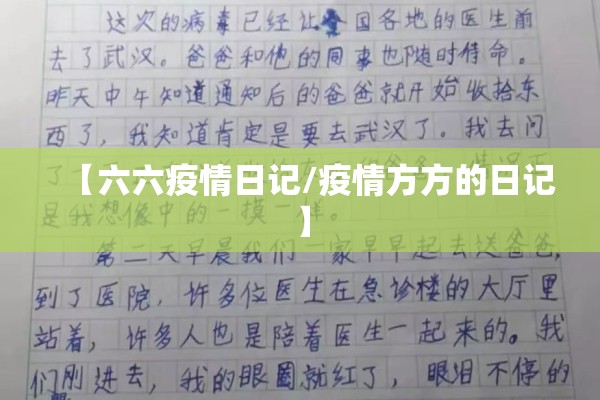 这次的病毒已经让全国各地的医生前
去了武汉。爸爸和他的同事也随时待命。
昨天中午知道通知后的爸爸就开始收拾东
西了，我知道肯定是要去武汉了。我去问
了
【六六疫情日记/疫情方方的日记
】
是我想像中的一摸一样。
第二天早晨我们一家早早起去送爸爸,
到了医院，许多位医生在急诊楼的大厅里
站着，许多人也是陪着医生一起来的。我
们刚进去，我的眼圈就红了，眼泪不停的